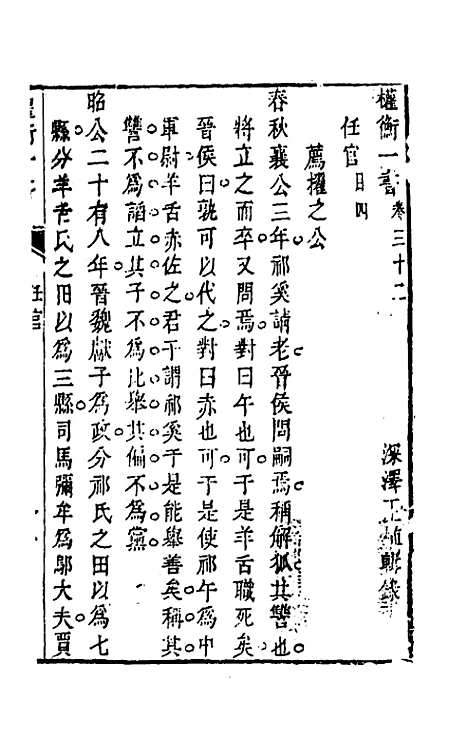 權衡一書卷三十二
深澤王植輯錄
任官目四
薦擢之公
春秋襄公三年祁奚請老晉侯問嗣焉稱解狐其讐也
將立之而卒又問焉對曰午也可于是羊舌職死矣
晉侯曰孰可以代之對曰赤也可于是使祁午爲中
軍尉羊舌赤佐之君子謂祁奚于是能舉善矣稱其
讐不爲謟立其子不爲比舉其偏不爲黨
昭公二十有八年晉魏獻子爲政分祁氏之田以爲七
縣分羊舌氏之田以爲三縣司馬彌牟爲鄔大夫賈
任官